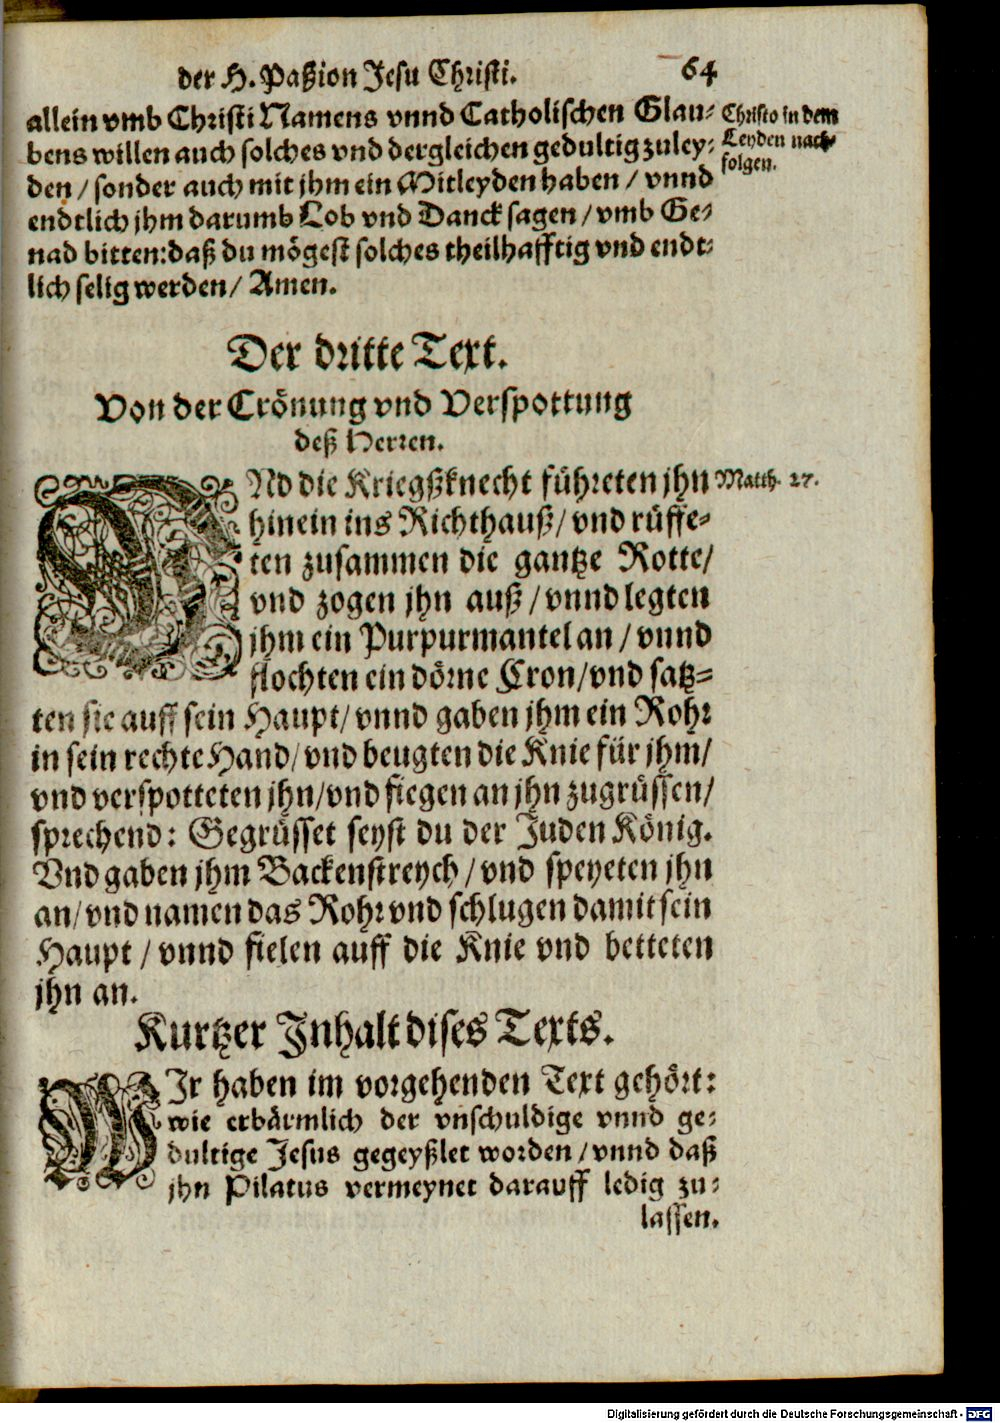 der H. Paßion Jesu Christi. 64
allein vmb Christi Namens vnnd Catholischen Glau-
bens willen auch solches vnd dergleichen gedultig zuley-
den / sonder auch mit jhm ein Mitleyden haben / vnnd
endtlich jhm darumb Lob vnd Danck sagen / vmb Ge-
nad bitten: daß du mögest solches theilhafftig vnd endt-
lich selig werden / Amen.
Christo in dem
Leyden nach-
folgen.
Der dritte Text.
Von der Crönung vnd Verspottung
deß Herren.
VNd die Kriegßknecht führeten jhn
hinein ins Richthauß / vnd rüffe-
ten zusammen die gantze Rotte /
vnd zogen jhn auß / vnnd legten
jhm ein Purpurmantel an / vnnd
flochten ein dörne Cron / vnd satz-
ten sie auff sein Haupt / vnnd gaben jhm ein Rohr
in sein rechte Hand / vnd beugten die Knie für jhm /
vnd verspotteten jhn / vnd fiegen an jhn zugrüssen /
sprechend: Gegrüsset seyst du der Juden König.
Vnd gaben jhm Backenstreych / vnd speyeten jhn
an / vnd namen das Rohr vnd schlugen damit sein
Haupt / vnnd fielen auff die Knie vnd betteten
jhn an.
Matth. 27.
Kurtzer Inhalt dises Texts.
WIr haben im vorgehenden Text gehört:
wie erbärmlich der vnschuldige vnnd ge-
dultige Jesus gegeyßlet worden / vnnd daß
jhn Pilatus vermeynet darauff ledig zu-
lassen.
Digitalisierung gefördert durch die Deutsche Forschungsgemeinschaft - DFG